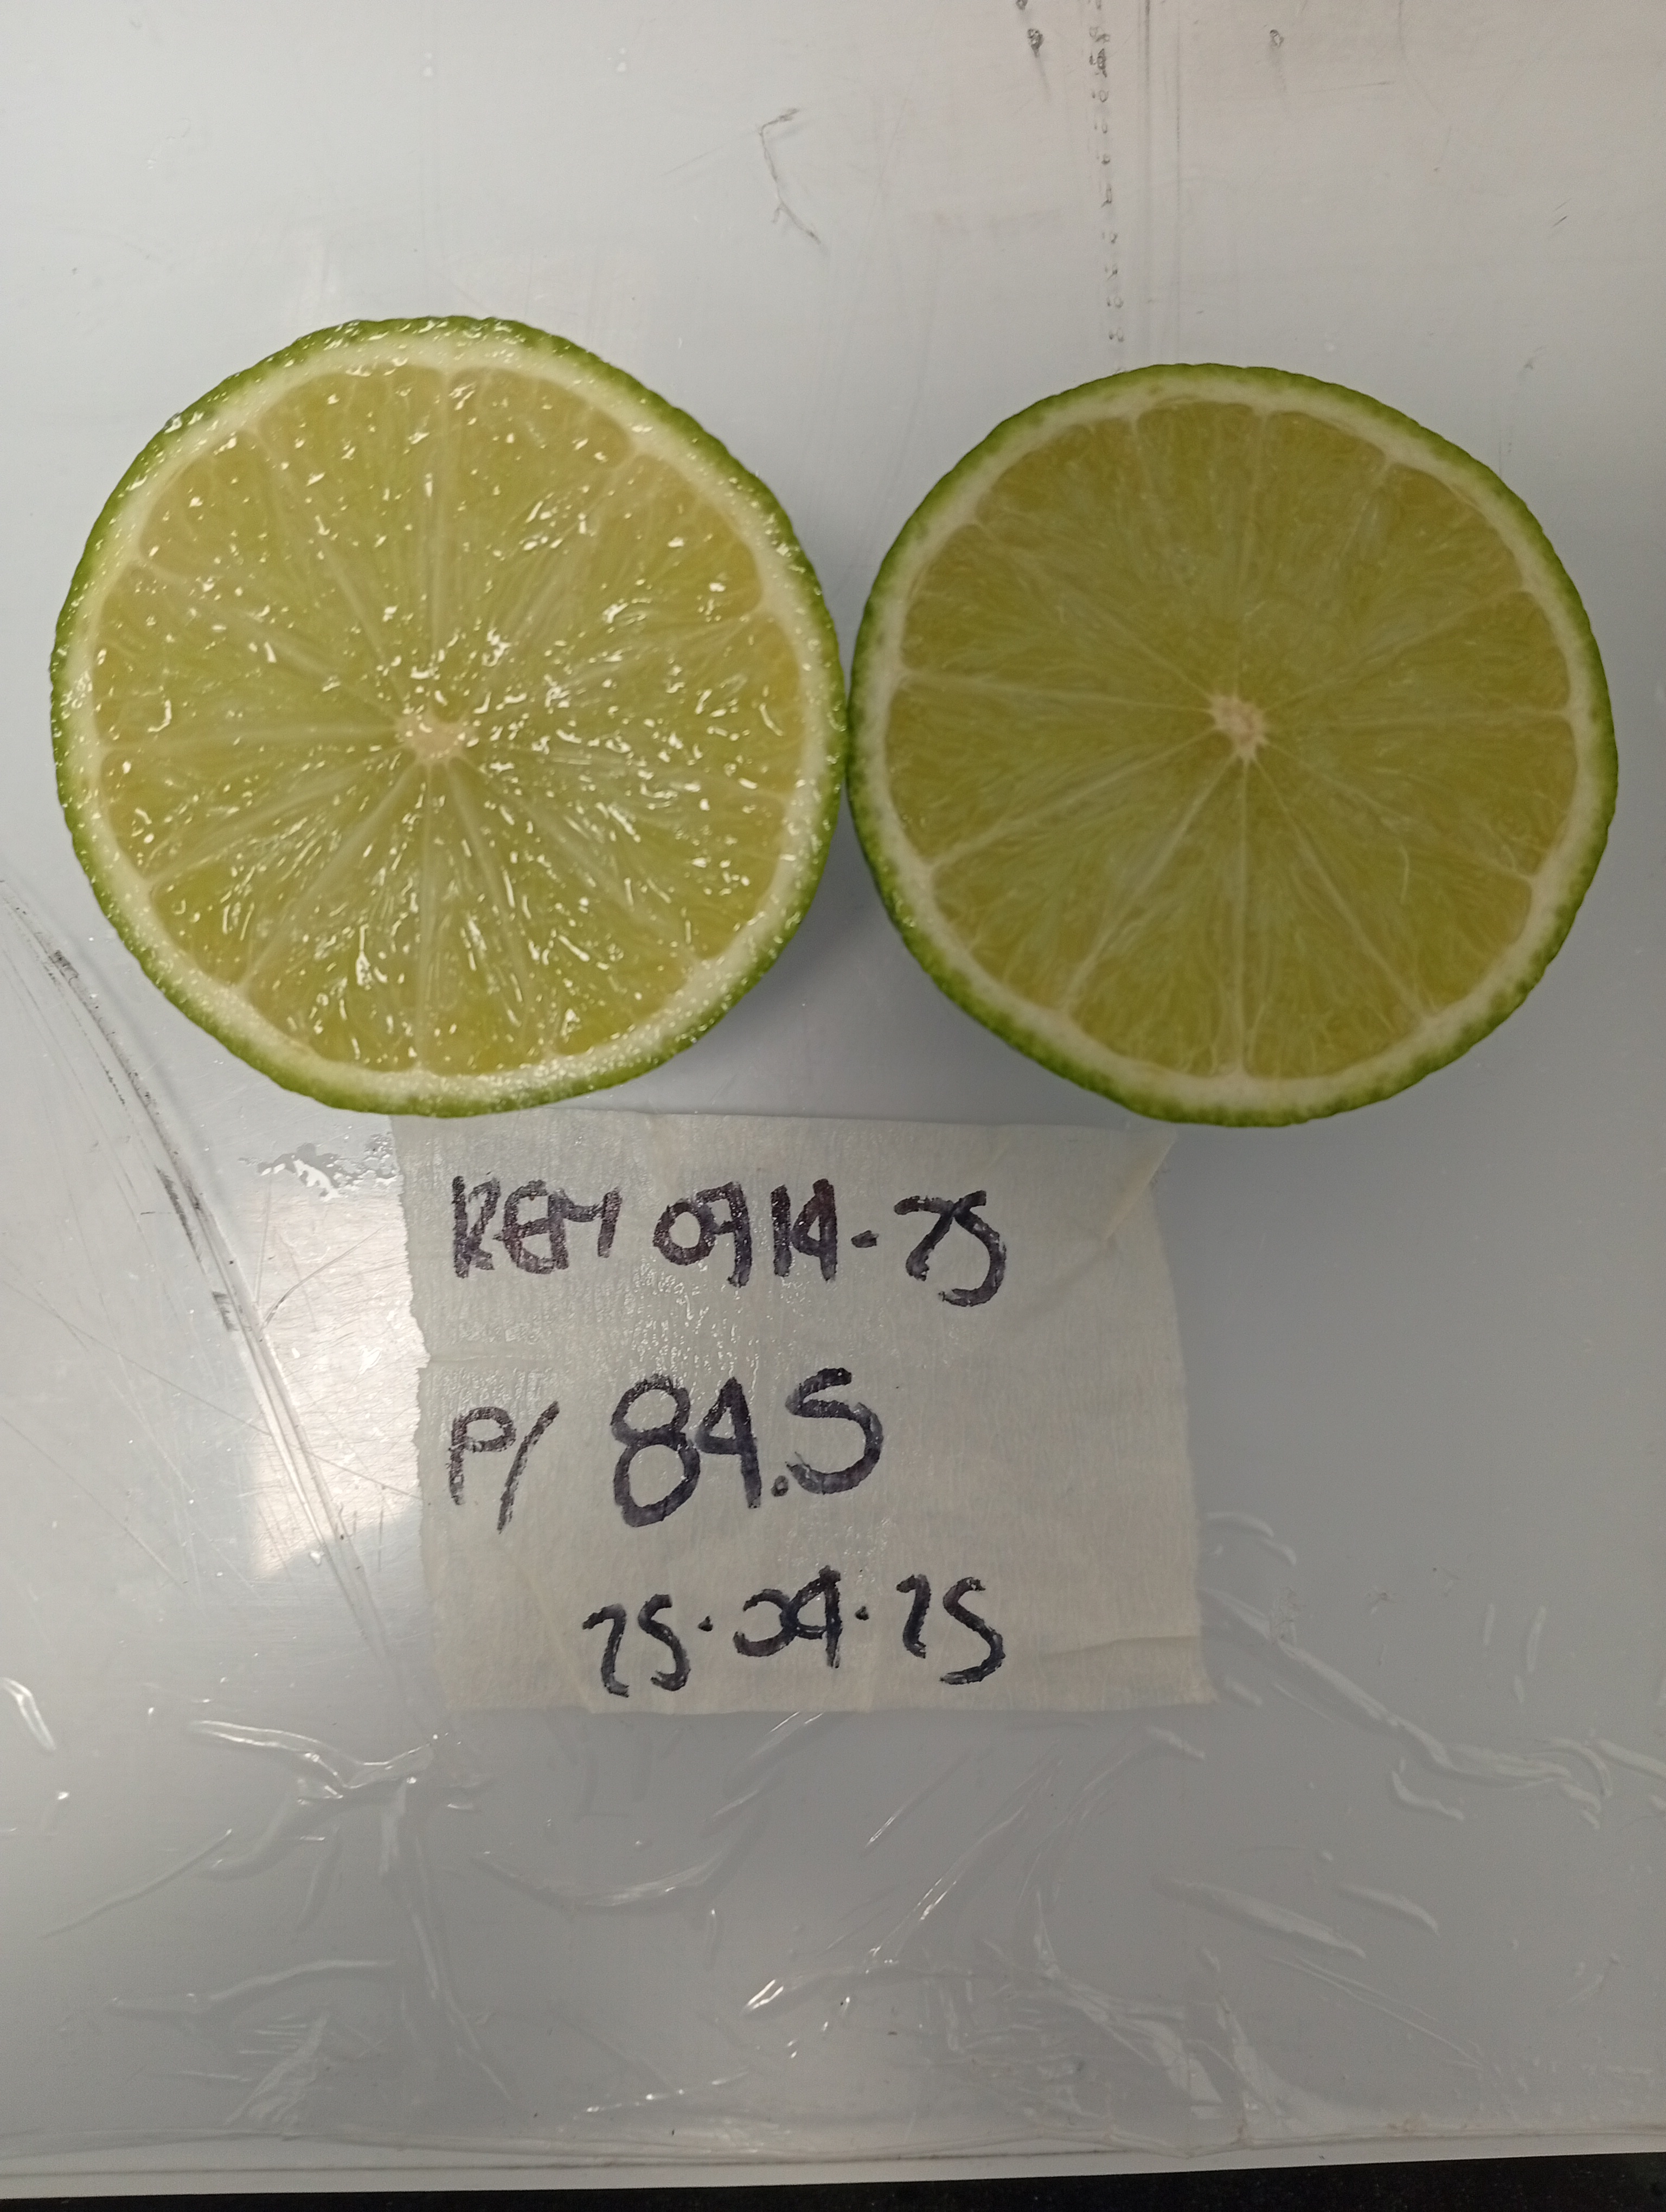 REM 0714-25
P/ 84.5
25.04.25